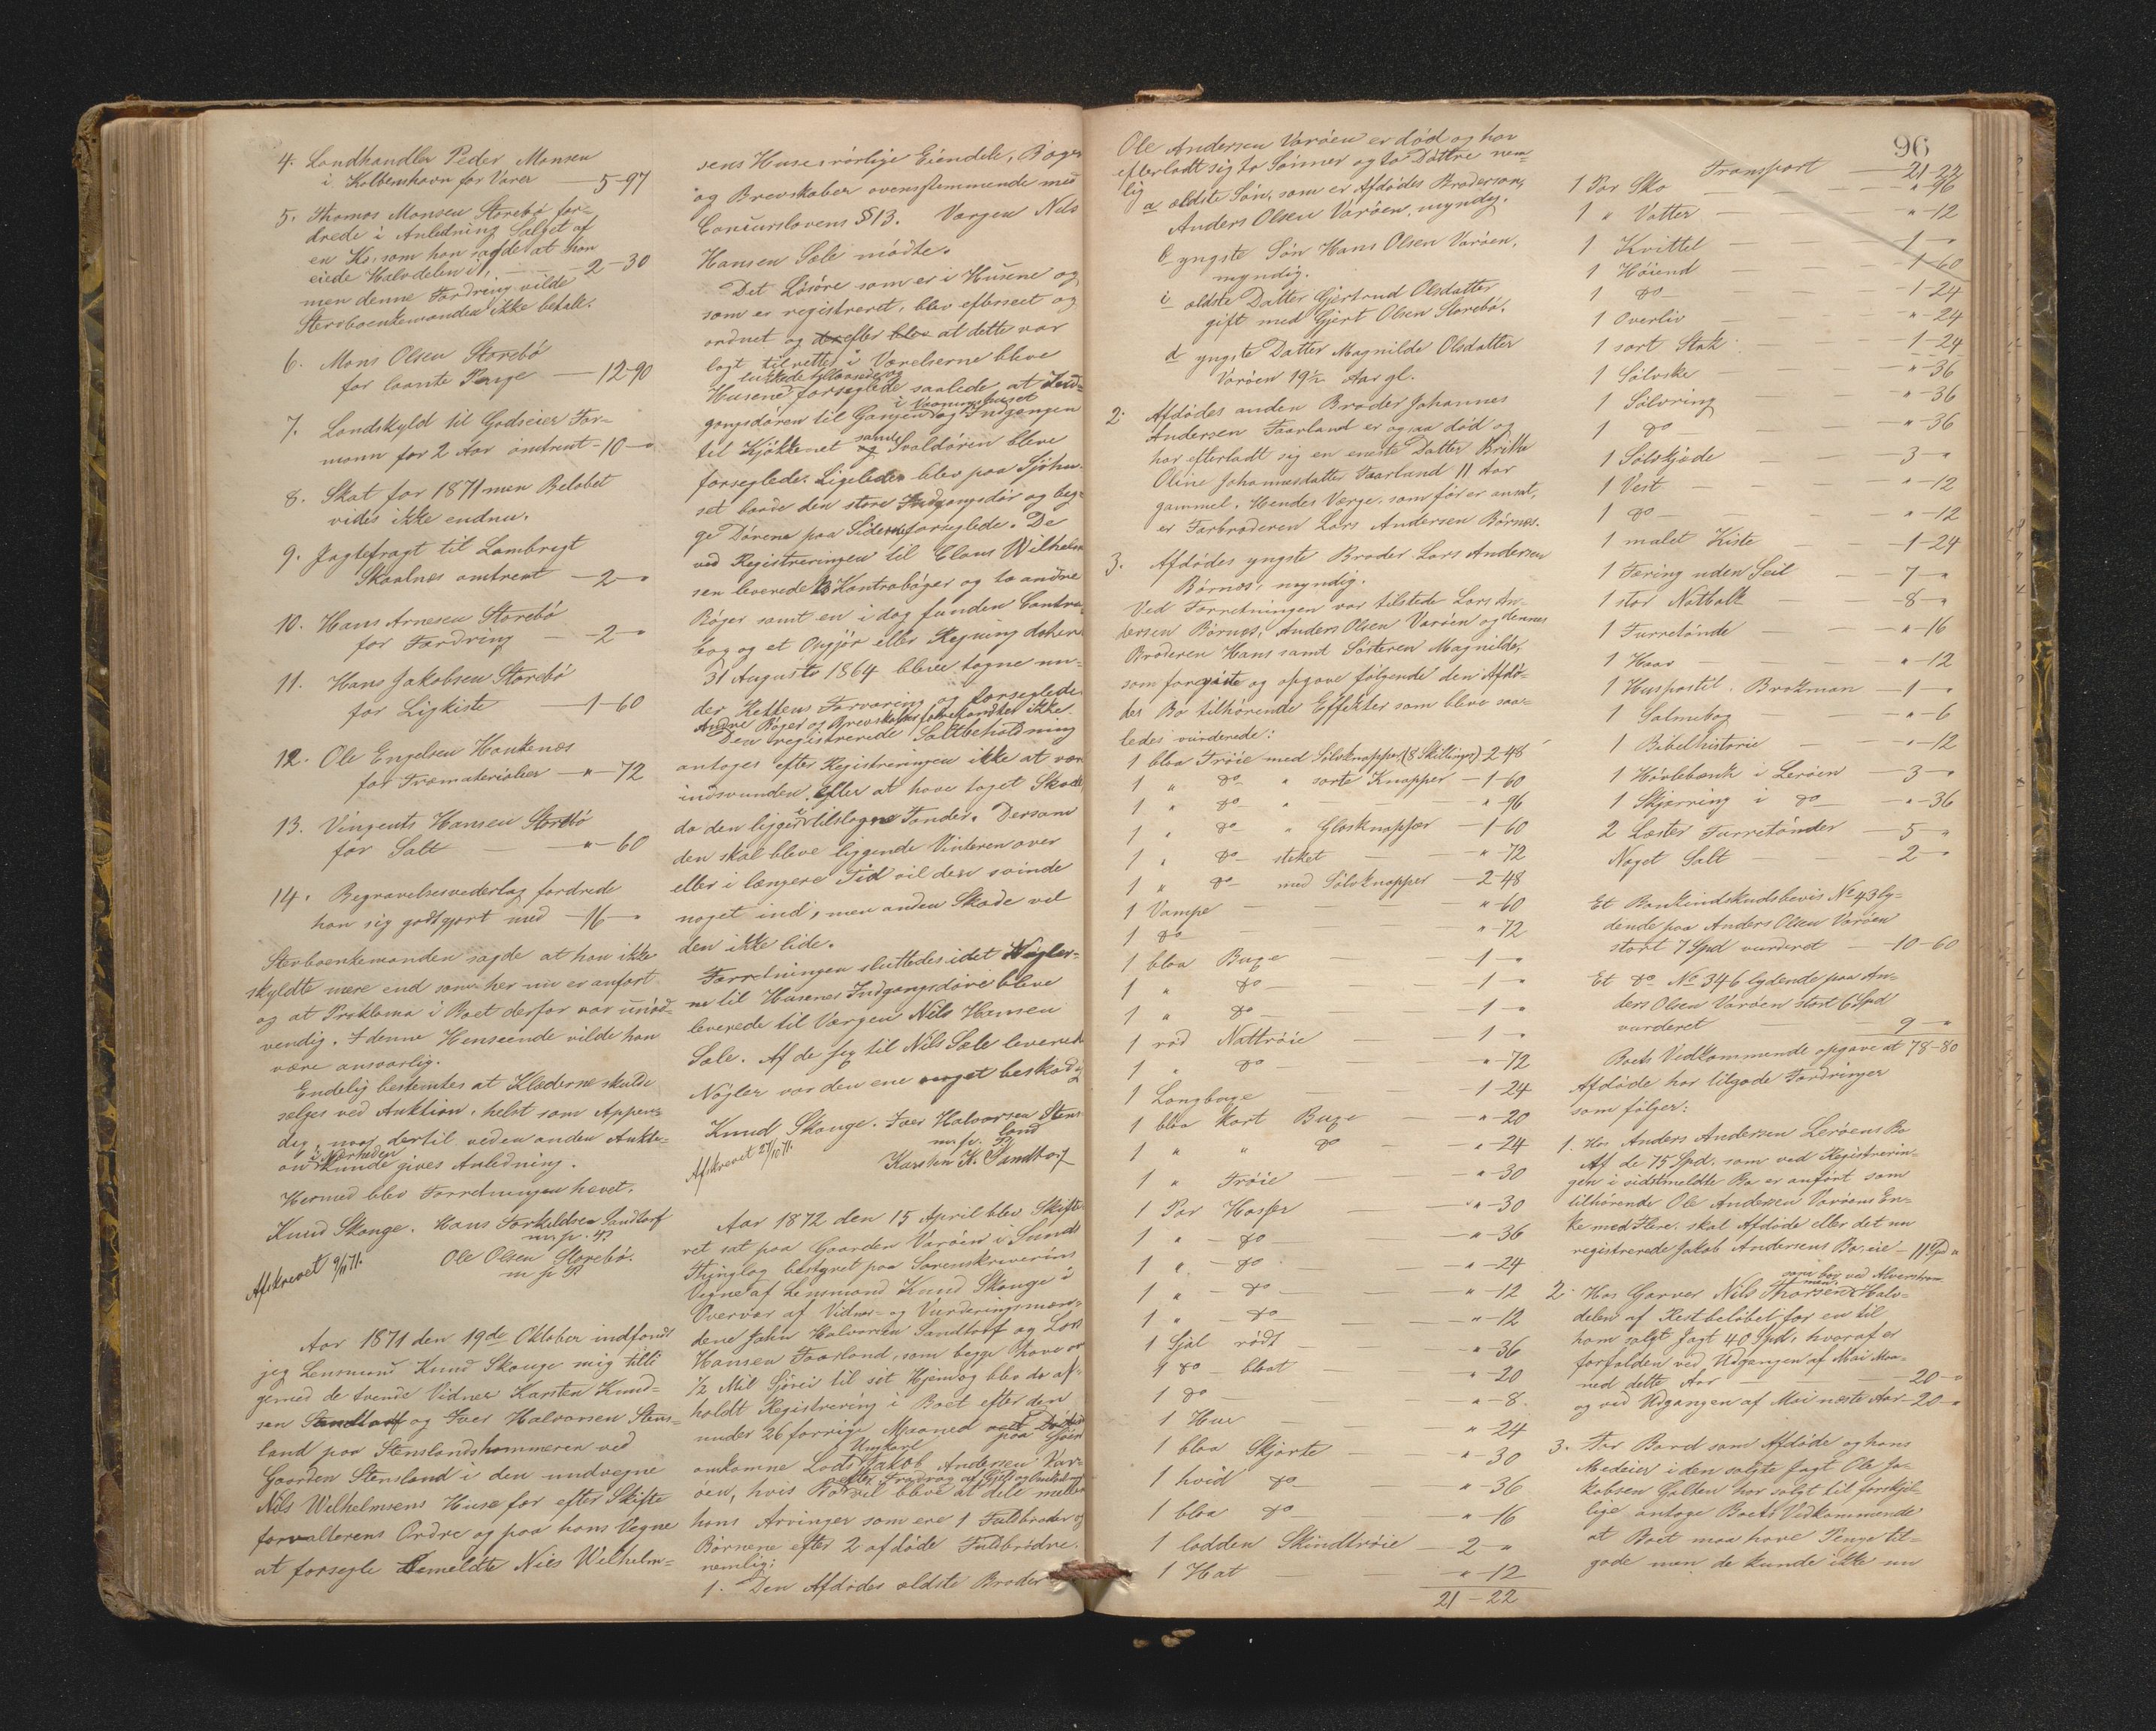 4. Landhandler Peder Monsen
i Kolbenshavn for Varer — 5-97
5. Thomas Monsen Storebø for-
drede i Anledning Salget af
en Ko, som han sagde at han
eiede Halvdelen i, — 2-30
men denne Fordring vilde
Stervboenkemanden ikke betale.
6. Mons Olsen Storebø
for laante Penge — 12-90
7. Landskyld til Godseier For-
mann for 2 Aar omtrent — 10 — "
8. Skat for 1871 men Beløbet
vides ikke endnu.
9. Jagtefragt til Lambregt
Skaalnes omtrent — 2 — "
10. Hans Arnesen Storebø
for Fordring — 2 — "
11. Hans Jakobsen Storebø
for Ligkiste — 1-60
12. Ole Engelsen Haukenæs
for Træmaterialier — " — 72
13. Vingents Hansen Storebø
for Salt — " — 60
14. Begravelsesvederlag fordrede
han sig godtgjort med — 16 — "
Stervboenkemanden sagde at han ikke
skyldte mere end som her nu er anført
og at Proklama i Boet derfor var unød-
vendig. I denne Henseende vilde han
være ansvarlig.
Endelig bestemtes at Klæderne skulde
selges ved Auktion, helst som Appen-
dix, naar dertil ved en anden Aukti-
on i Nærheden kunde gives Anledning.
Hermed blev Forretningen hævet.
Knud Skauge. Hans Torkildsen Sandtorf
m. p. P.
Ole Olsen Storebø.
m p P
Afskrevet 9/11 71.
Aar 1871 den 19de Oktober indfandt
jeg Lensmand Knud Skauge mig tilli-
gemed de tvende Vidner Karsten Knud-
sen Sandtorf og Iver Halvorsen Stens-
land paa Stenslandshammeren ved
Gaarden Stensland i den undvegne
Nils Wilhelmsens Huse for efter Skifte
forvalterens Ordre og paa hans Vegne
at forsegle bemeldte Niels Wilhelm-
sens Huse, rørlige Eiendele, Bøger
og Brevskaber ovensstemmende med
Concurslovens § 13. Værgen Nils
Hansen Sæle mødte.
Det Løsøre som er i Husene og
som er registreret, blev efterseet og
ordnet og derefter blev at dette var
lagt tilrette i Værelserne bleve
Husene lukkede tillaasede og forseglede saalede, at Ind-
gangsdøren til Gangen i Vaaningshuset og Indgangen
til Kjøkkenet samt og Svaldøren bleve
forseglede. Ligeledes blev paa Sjøhu-
set baade den store Indgangsdør og beg-
ge Dørene paa Siderne forseglede. De
ved Registreringen til Claus Wilhelm
sen leverede 13 Kontrabøger og to andre
Bøger samt en i dag funden Contra-
bog og et Opgjør eller Regning dateret
31 Augusto 1864 bleve tagne un-
der Rettens Forvaring og forseglede
Andre Bøger og Brevskaber forefandtes ikke.
Den registrerede Saltbeholdning
antoges efter Registreringen ikke at være
indsvunden, eller at have taget Skade
da den ligger i tilslagne Tønder. Dersom
den skal bleve liggende Vinteren over
eller i længere Tid vil den svinde
noget ind, men anden Skade vil
den ikke lide.
Forretningen sluttedes idet Nøgler-
ne til Husenes Indgangsdøre bleve
leverede til Værgen Nils Hansen
Sæle. Af de jeg til Nils Sæle leverede
Nøgler var den ene noget beskadig
Knud Skauge. Iver Halvorsen Stens-
land
m. p. P.
Karsten K. Sandtorf
Afskrevet 27/10 71.
Aar 1872 den 15 April blev Skifte-
ret sat paa Gaarden Varøen i Sunds
Thinglag bestyret paa Sorenskriverens
Vegne af Lensmand Knud Skauge i
Overvær af Vidner- og Vurderingsmæn-
dene John Halvorsen Sandtorf og Lars
Hansen Faarland, som begge have over
1/2 Mil Sjøvei til sit Hjem og blev da af-
holdt Registrering i Boet efter den
under 26 forrige Maaned paa Sjøen
omkomne Lods Ungkarl Jakob Andersen Var-
øen, hvis Bo efter Fradrag af Gjeld og Omkostninger vil bleve at dele mellem
hans Arvinger som ere 1 Fuldbroder og
Børnene efter 2 afdøde Fuldbrødre,
nemlig:
1. Den Afdødes ældste Broder
Ole Andersen Varøen er død og har
efterladt sig to Sønner og to Døttre nem-
lig
a ældste Søn, som er Afdødes Brodersøn,
Anders Olsen Varøen, myndig.
b yngste Søn Hans Olsen Varøen,
myndig.
c ældste Datter Gjertrud Olsdatter
gift med Gjert Olsen Storebø.
d yngste Datter Magnilde Olsdatter
Varøen 19 1/2 Aar gl.
2. Afdødes anden Broder Johannes
Andersen Faarland er ogsaa død og
har efterladt sig en eneste Datter Brithe
Oline Johannesdatter Faarland 11 Aar
gammel. Hendes Værge, som før er ansat,
er Farbroderen Lars Andersen Børnes.
3. Afdødes yngste Broder Lars Andersen
Børnes, myndig.
Ved Forretningen var tilstede Lars An-
dersen Børnes, Anders Olsen Varøen og dennes
Broderen Hans samt Søsteren Magnilde,
som foreviste og opgave følgende den Afdø-
des Bo tilhørende Effekter som bleve saa-
ledes vurderede:
1 blaa Trøie med Sølvknapper (8 Skillings) 2-48
1 " do " sorte Knapper — 1-60
1 " do " — " — 96
1 " do " Glasknapper — 1-60
1 " do steket — " — 72
1 " do med Sølvknapper — 2-48
1 Vampe — " — 60
1 do — " — 72
1 blaa Buxe — 1 — "
1 " do — 1 — "
1 " do — 1 — "
1 rød Nattrøie — 1 — "
1 " do — " — 72
1 Langbuxe — 1-24
1 blaa kort Buxe — " — 20
1 " " do — " — 24
1 " Trøie — " — 30
1 Par Hoser — " — 30
1 " — do — " — 36
1 " — do — " — 24
1 " — do — " — 12
1 " — do — " — 12
1 Sjal rødt — " — 36
1 do blaat — " — 20
1 do — " — 8
1 Hue — " — 24
1 blaa Skjorte — " — 30
1 hvid do — " — 36
1 blaa do — " — 16
1 lodden Skindtrøie — 2 — "
1 Hat — " — 12
21-22
96
Transport — 21-22
1 Par Sko — " — 96
1 " Vatter — " — 12
1 Kvittel — 1 — "
1 Høiend — 1-60
1 do — 1-24
1 Overliv — " — 24
1 sort Stak — 1-24
1 Sølvske — " — 36
1 Sølvring — " — 36
1 do — " — 36
1 Sølvkjæde — 3 — "
1 Vest — " — 12
1 do — " — 12
1 malet Kiste — 1-24
1 Færing uden Seil — 7 — "
1 stor Notbolk — 8 — "
1 Turretønde — " — 16
1 Haav — " — 12
1 Huspostil. Brokman — 1 — "
1 Salmebog — " — 6
1 Bibelhistorie — " — 12
1 Høvlebænk i Lerøen — 3 — "
1 Skjærring i do — " — 36
2 Læster Turretønder — 5 — "
Noget Salt — 2 — "
Et Bankindskudsbevis No 43 ly-
dende paa Anders Olsen Varøen
stort 7 Spd vurderet — 10-60
Et do No 346 lydende paa An-
ders Olsen Varøen stort 6 Spd
vurderet — 9 — "
Boets Vedkommende opgave at 78-80
Afdøde har tilgode Fordringer
som følger:
1. Hos Anders Andersen Lerøens Bo
Af de 75 Spd. som ved Registrerin-
gen i sidstmeldte Bo er anført som
tilhørende Ole Andersen Varøens En-
ke med Flere, skal Afdøde eller det nu
registrerede Jakob Andersens Bo eie — 11 Spd "
2. Hos Garver Nils Thorsen som bor ved Alverstrøm-
men, Halv-
delen af Restbeløbet for en til
ham solgt Jagt 40 Spd, hvoraf er
forfalden ved Udgangen af Mai Maa-
ned dette Aar — 20 — "
og ved Udgangen af Mai næste Aar 20 — "
3. For Bord som Afdøde og hans
Medeier i den solgte Jagt Ole Ja-
kobsen Hjelten har solgt til forskjel-
lige antoge Boets Vedkommende
at Boet maa have Penge til-
gode men de kunde ikke nu